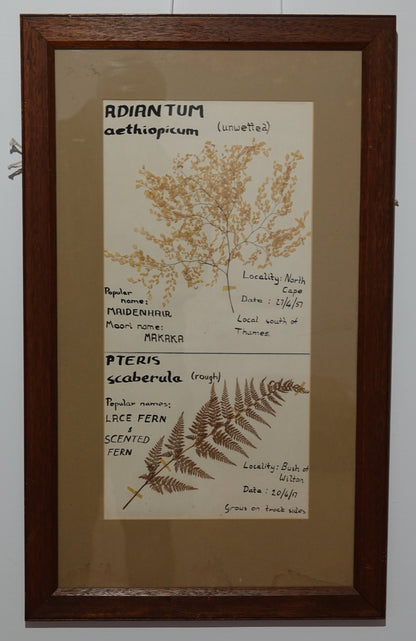 ADIANTUM
aethiopicum (unwetted)
Popular
name:
MAIDENHAIR
Maori name:
MAKAKA
Locality: North
Cape
Date: 27/4/57
Local south of
Thames.
PTERIS
scaberula (rough)
Popular names:
LACE FERN
&
SCENTED
FERN
Locality: Bush of
Wilton
Date: 20/6/17
Grows on track sides